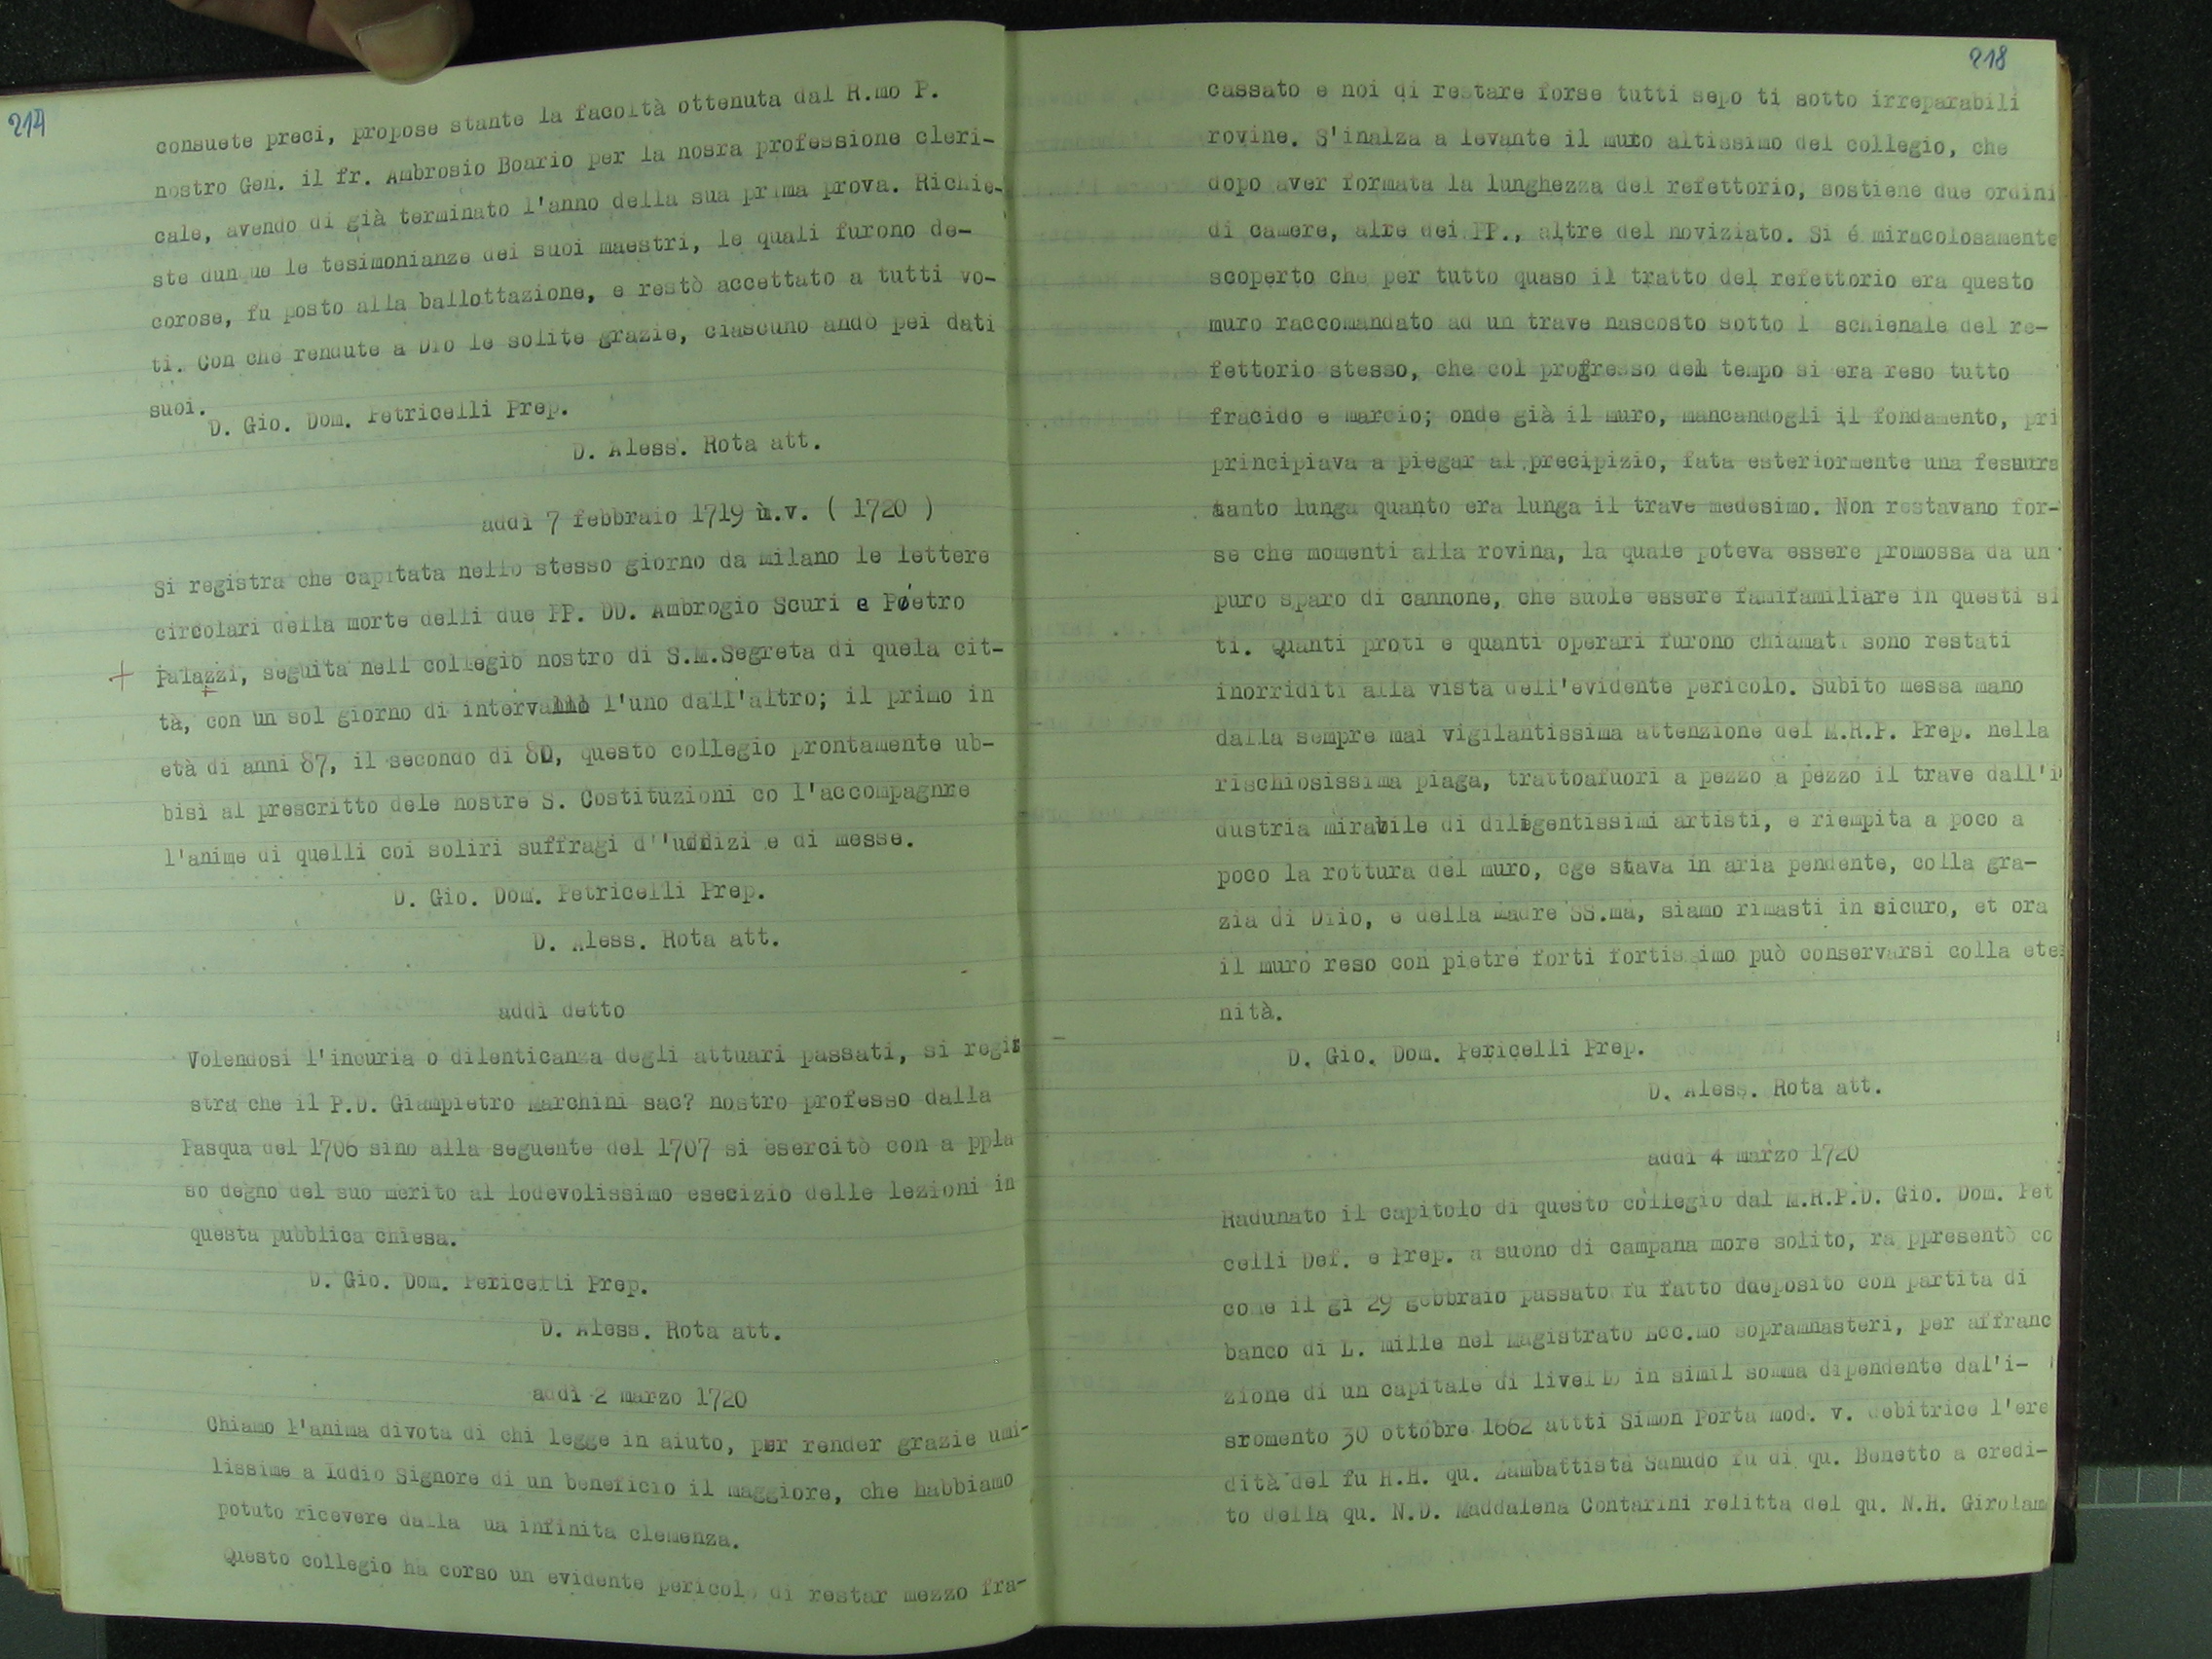 214
consuete preci, propose stante la facoltà ottenuta dal R.mo P.
nostro Gen. il fr. Ambrosio Boario per la nosra professione cleri-
cale, avendo di già terminato l'anno della sua prima prova. Richie-
ste dunque le tesimonianze dei suoi maestri, le quali furono de-
corose, fu posto alla ballottazione, e restò accettato a tutti vo-
ti. Con che rendute a Dio le solite grazie, ciascuno andò pei dati
suoi.
D. Gio. Dom. Petricelli Prep.
D. Aless. Rota att.
addì 7 febbraio 1719 m.v. ( 1720 )
Si registra che capitata nello stesso giorno da Milano le lettere
circolari della morte delli due PP. DD. Ambrogio Scuri e Pietro
+ Palazzi, seguita nell collegio nostro di S.M.Segreta di quela cit-
tà, con un sol giorno di intervallo l'uno dall'altro; il primo in
età di anni 87, il secondo di 80, questo collegio prontamente ub-
bisì al prescritto dele nostre S. Costituzioni co l'accompagnre
l'anime di quelli coi soliri suffragi d''uddizi e di messe.
D. Gio. Dom. Petricelli Prep.
D. Aless. Rota att.
addì detto
Volendosi l'incuria o dilenticanza degli attuari passati, si regis
stra che il P.D. Giampietro Marchini sac? nostro professo dalla
Pasqua del 1706 sino alla seguente del 1707 si esercitò con a ppla
so degno del suo merito al lodevolissimo esecizio delle lezioni in
questa pubblica chiesa.
D. Gio. Dom. Pericelli Prep.
D. Aless. Rota att.
addì 2 marzo 1720
Chiamo l'anima divota di chi legge in aiuto, per render grazie umi-
lissime a Iddio Signore di un beneficio il maggiore, che habbiamo
potuto ricevere dalla ua infinita clemenza.
Questo collegio ha corso un evidente pericolo di restar mezzo fra-
218
cassato e noi di restare forse tutti sepo ti sotto irreparabili
rovine. S'inalza a levante il muro altissimo del collegio, che
dopo aver formata la lunghezza del refettorio, sostiene due ordini
di camere, alre dei PP., altre del noviziato. Si é miracolosamente
scoperto che per tutto quaso il tratto del refettorio era questo
muro raccomandato ad un trave nascosto sotto l schienale del re-
fettorio stesso, che col progresso del tempo si era reso tutto
fracido e marcio; onde già il muro, mancandogli il fondamento, pri
principiava a piegar al precipizio, fata esteriormente una fesuura
tanto lunga quanto era lunga il trave medesimo. Non restavano for-
se che momenti alla rovina, la quale poteva essere promossa da un
puro sparo di cannone, che suole essere famifamiliare in questi si
ti. Quanti proti e quanti operari furono chiamati sono restati
inorriditi alla vista dell'evidente pericolo. Subito messa mano
dalla sempre mai vigilantissima attenzione del M.R.P. Prep. nella
rischiosissima piaga, trattoafuori a pezzo a pezzo il trave dall'i
dustria mirabile di diligentissimi artisti, e riempita a poco a
poco la rottura del muro, cge stava in aria pendente, colla gra-
zia di Diio, e della Madre SS.ma, siamo rimasti in sicuro, et ora
il muro reso con pietre forti fortissimo può conservarsi colla ete
nità.
D. Gio. Dom. Pericelli Prep.
D. Aless. Rota att.
addì 4 marzo 1720
Radunato il capitolo di questo collegio dal M.R.P.D. Gio. Dom. Pet
celli Def. e Prep. a suono di campana more solito, ra ppresentò co
come il gi 29 gebbraio passato fu fatto ddeposito con partita di
banco di L. mille nel Magistrato Ecc.mo sopramnasteri, per affranc
zione di un capitale di livello in simil somma dipendente dal'i-
sromento 30 ottobre 1662 attti Simon Porta mod. v. debitrice l'ere
dità del fu H.H. qu. Zambattista Sanudo fu di qu. Benetto a credi-
to della qu. N.D. Maddalena Contarini relitta del qu. N.H. Girolam